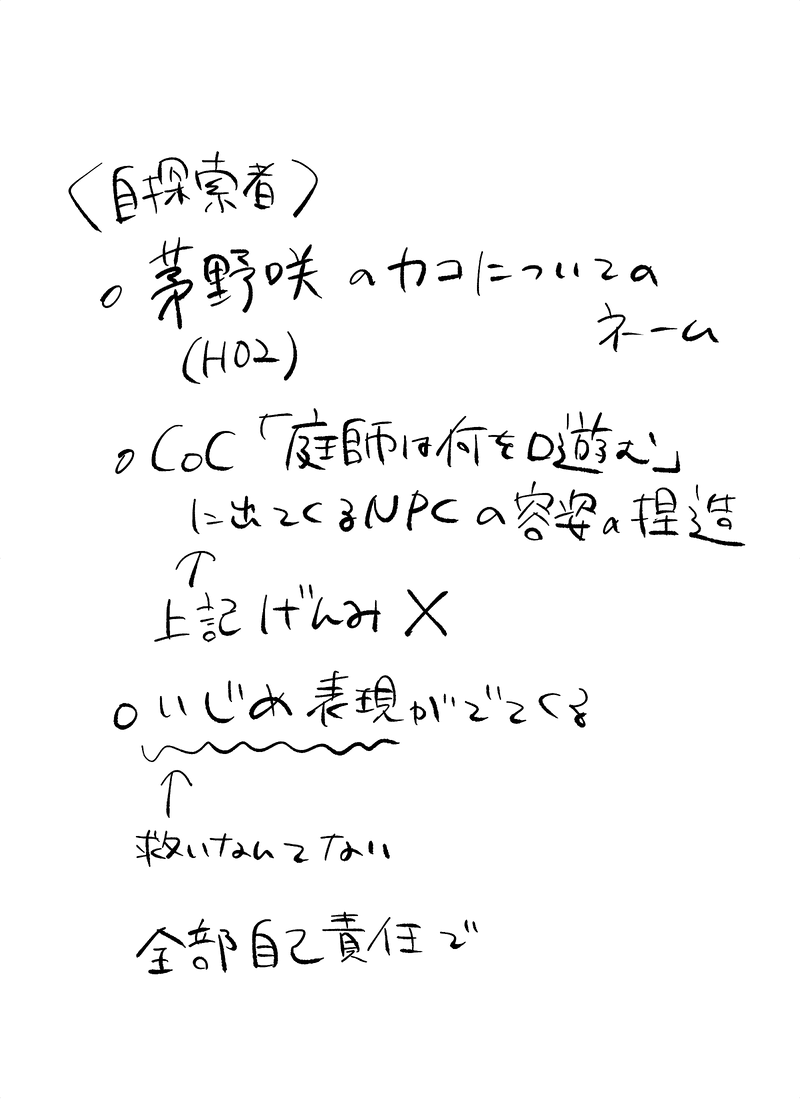 〈自探索者〉
○ 茅野咲 のカコについての
ネーム
(HO2)
○ CoC「庭師は何を口遊む」
に出てくるNPCの容姿の捏造
↑
上記げんみ×
○ いじめ表現がでてくる
↑
救いなんてない
全部自己責任で